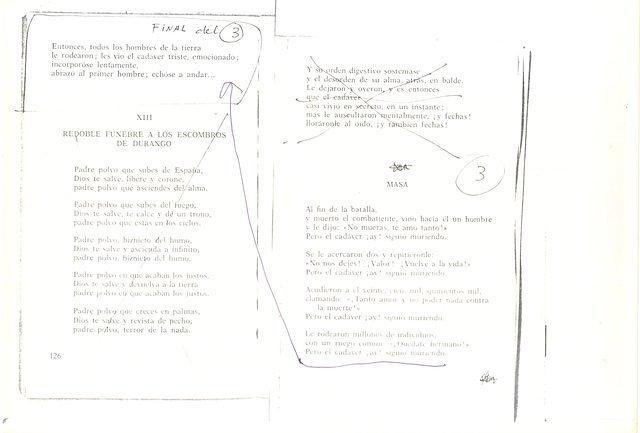 FINAL del 3
Entonces, todos los hombres de la tierra
le rodearon; les vio el cadáver triste, emocionado;
incorporóse lentamente,
abrazó al primer hombre; echóse a andar...
XIII
REDOBLE FUNEBRE A LOS ESCOMBROS
DE DURANGO
Padre polvo que subes de España,
Dios te salve, libere y corone,
padre polvo que asciendes del alma.
Padre polvo que subes del fuego,
Dios te salve, te calce y dé un trono,
padre polvo que estás en los cielos.
Padre polvo, biznieto del humo,
Dios te salve y ascienda a infinito,
padre polvo, biznieto del humo.
Padre polvo en que acaban los justos,
Dios te salve y devuelva a la tierra
padre polvo en que acaban los justos.
Padre polvo que creces en palmas,
Dios te salve y revista de pecho,
padre polvo, terror de la nada.
126
Y su orden digestivo sosteníase
y el desorden de su alma, atrás, en balde.
Le dejaron y oyeron, y es entonces
que el cadáver
casi vivió en secreto, en un instante;
mas le auscultaron mentalmente, ¡y fechas!
lloráronle al oído, ¡y también fechas!
3
MASA
Al fin de la batalla,
y muerto el combatiente, vino hacia él un hombre
y le dijo: «No mueras, te amo tanto!»
Pero el cadáver ¡ay! siguió muriendo.
Se le acercaron dos y repitiéronle:
«No nos dejes! ¡Valor! ¡Vuelve a la vida!»
Pero el cadáver ¡ay! siguió muriendo.
Acudieron a él veinte, cien, mil, quinientos mil,
clamando: «¡Tanto amor y no poder nada contra
la muerte!»
Pero el cadáver ¡ay! siguió muriendo.
Le rodearon millones de individuos,
con un ruego común: «¡Quédate hermano!»
Pero el cadáver ¡ay! siguió muriendo.